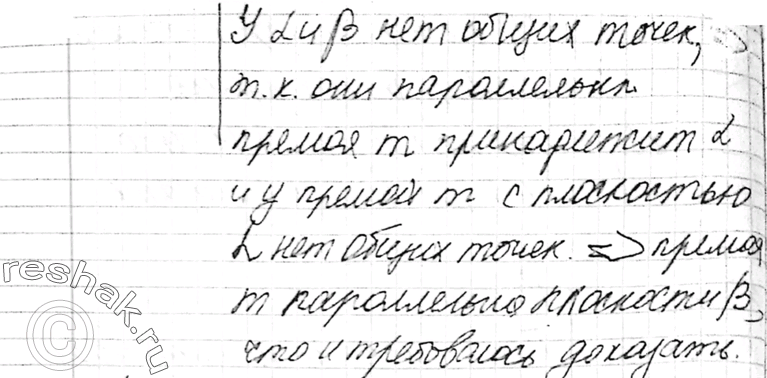 У α и β нет общих точек, =>
т.к. они параллельны
прямая m принадлежит α
и у прямой m с плоскостью
α нет общих точек. => прямая
m параллельна плоскости β,
что и требовалось доказать.
©reshak.ru